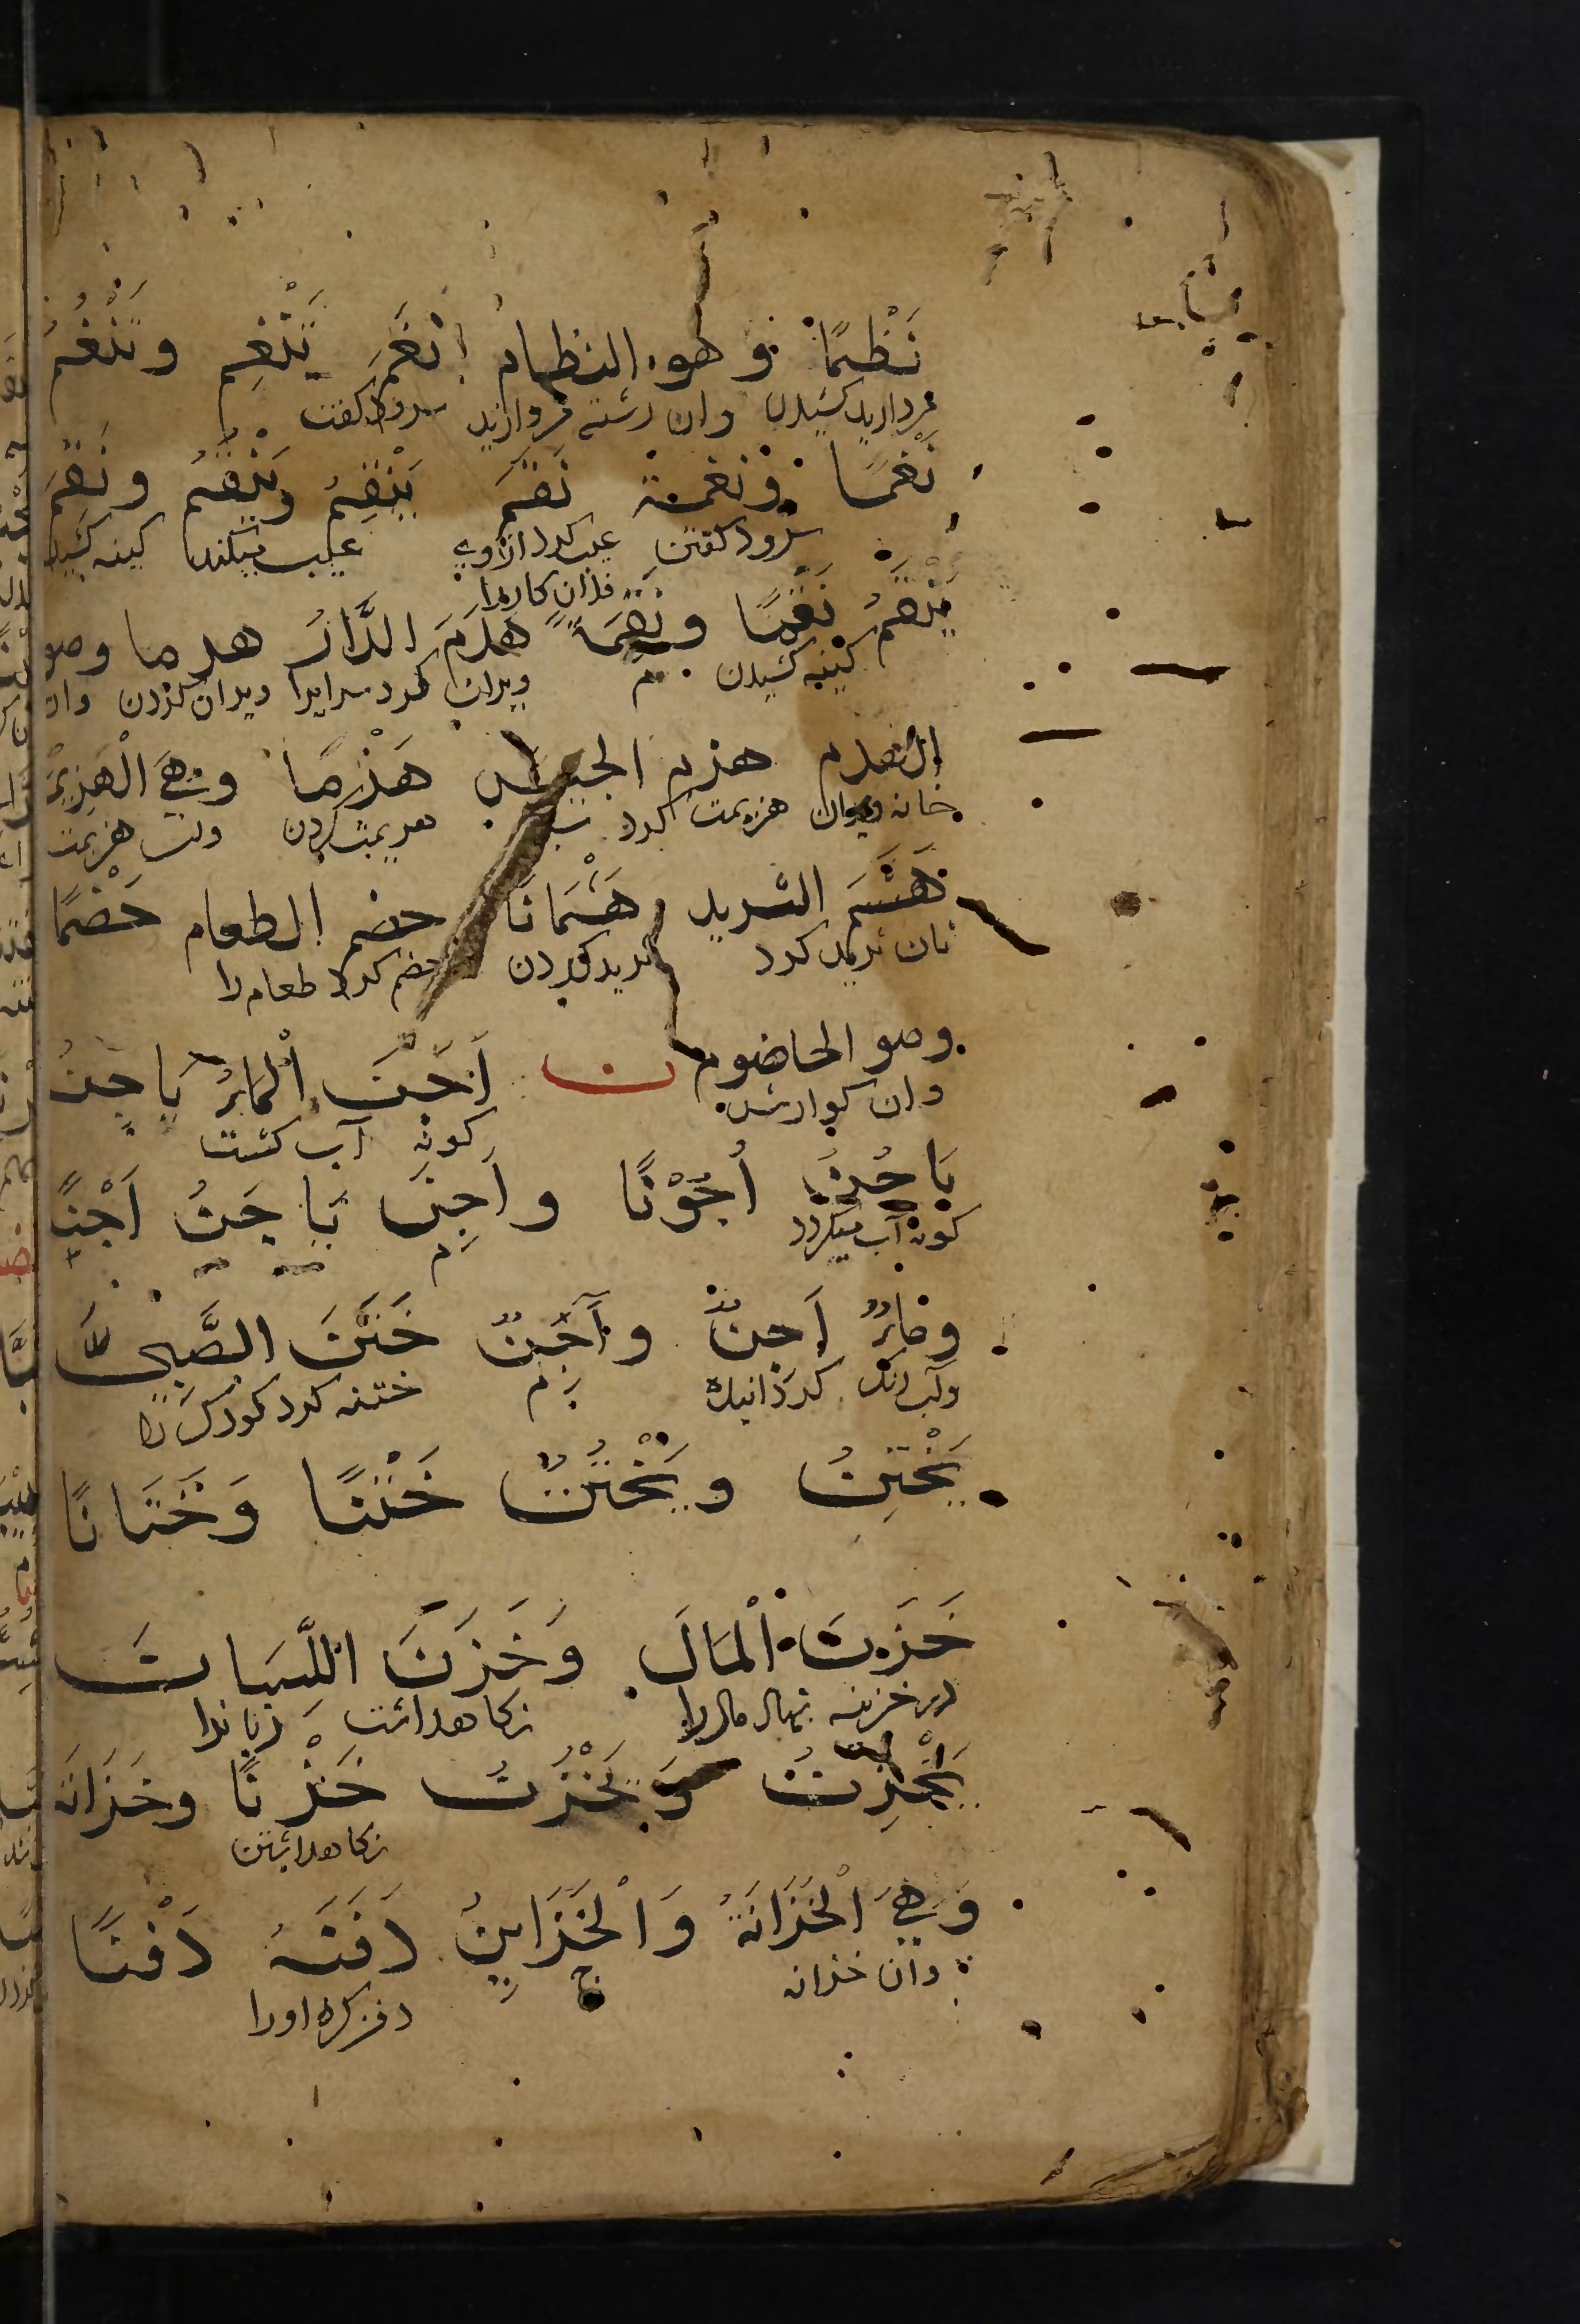 نَظْمًا وهو النظام نَغَمَ يَنْغِم ويَنْغُمُ
مرواريد كشيدن وان رشته مرواريد سرود كفت
نَغْمًا ونغمة نَقَمَ يَنْقِمُ ويَنْقَمُ ونَقِمَ
سرود كفتن عيب كرد ازوي عيب ميكند كينه كشيد
فلان كاررا
يَنْقَمُ نَقْمًا ونَقَمًا هَدَمَ الدَّارَ هدما وهو
كينه كشيدن م ويران كرد سرايرا ويران كردن وان
الهدم هزم الجيش هَزْمًا وهِيَ الْهَزِيْمَة
خانه ويران هزيمت كرد هزيمت كردن هزيمت
هَشَمَ الثريد هَشْمَانًا حضم الطعام حَضْمًا
نان تريد كرد تريد كردن هضم كرد طعام را
وهو الحاضوم ن أَجَنَ الْمَاءُ يَاجِنُ
وان كوارش كونه آب كشت
يَاجُنُ أُجُوْنًا وأَجِنَ يَاجَنُ اَجْنًا
كونه آب ميكردد م
وماءٌ اَجِنٌ وآجِنٌ خَتَنَ الصَّبِىَّ
كردانيده م ختنه كرد كودك را
يَخْتِنُ ويَخْتُنُ خَتْنًا وَخَتَانًا
خَزَنَ الْمَالَ وَخَزَنَ اللِّسَانَ
در خزينه نهاد مال را نكاهداشت زبانرا
يَخْزِنُ وَيَخْزُنُ خَزْنًا وخَزَانَة
نكاهداشتن
وَهِيَ الْخَزَانَةُ وَالْخَزَايِنُ دَفَنَهُ دَفْنًا
وان خزانه ج دفن كرد اورا